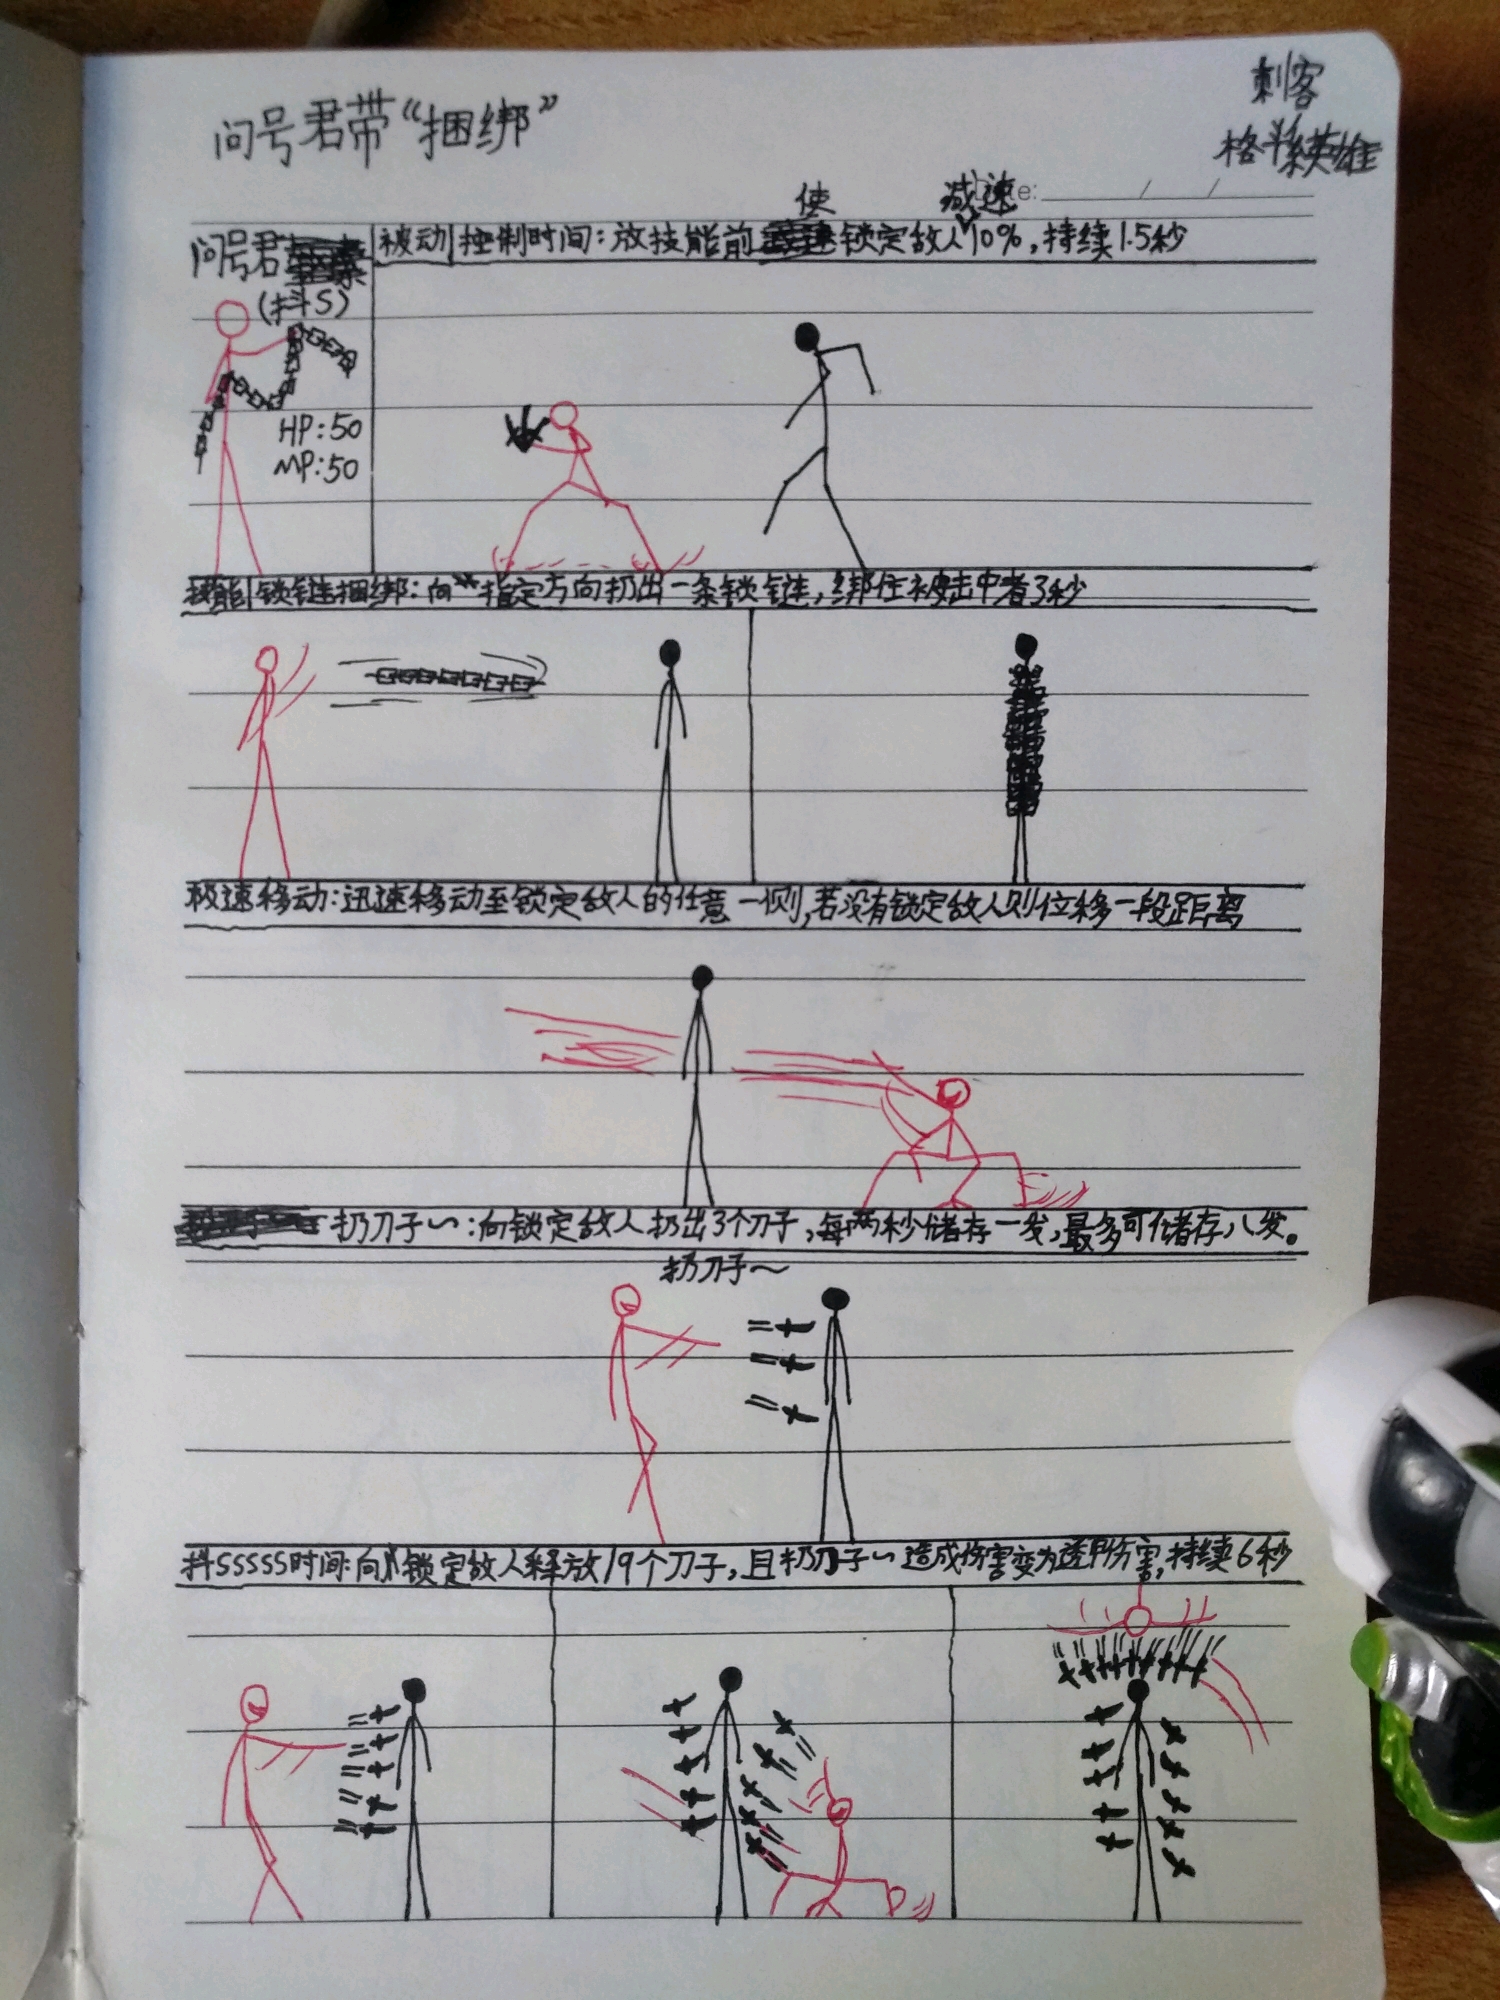 问号君带“捆绑”
刺客
格斗系英雄
Date: / /
问号君
(抖S)
HP:50
MP:50
被动 控制时间：放技能前使锁定敌人减速10%，持续1.5秒
技能 锁链捆绑：向指定方向扔出一条锁链，绑住被击中者3秒
极速移动：迅速移动至锁定敌人的任意一侧，若没有锁定敌人则位移一段距离
扔刀子～：向锁定敌人扔出3个刀子，每两秒储存一发，最多可储存八发。
扔刀子～
抖SSSSS时间：向锁定敌人释放19个刀子，且扔刀子～造成伤害变为透甲伤害，持续6秒